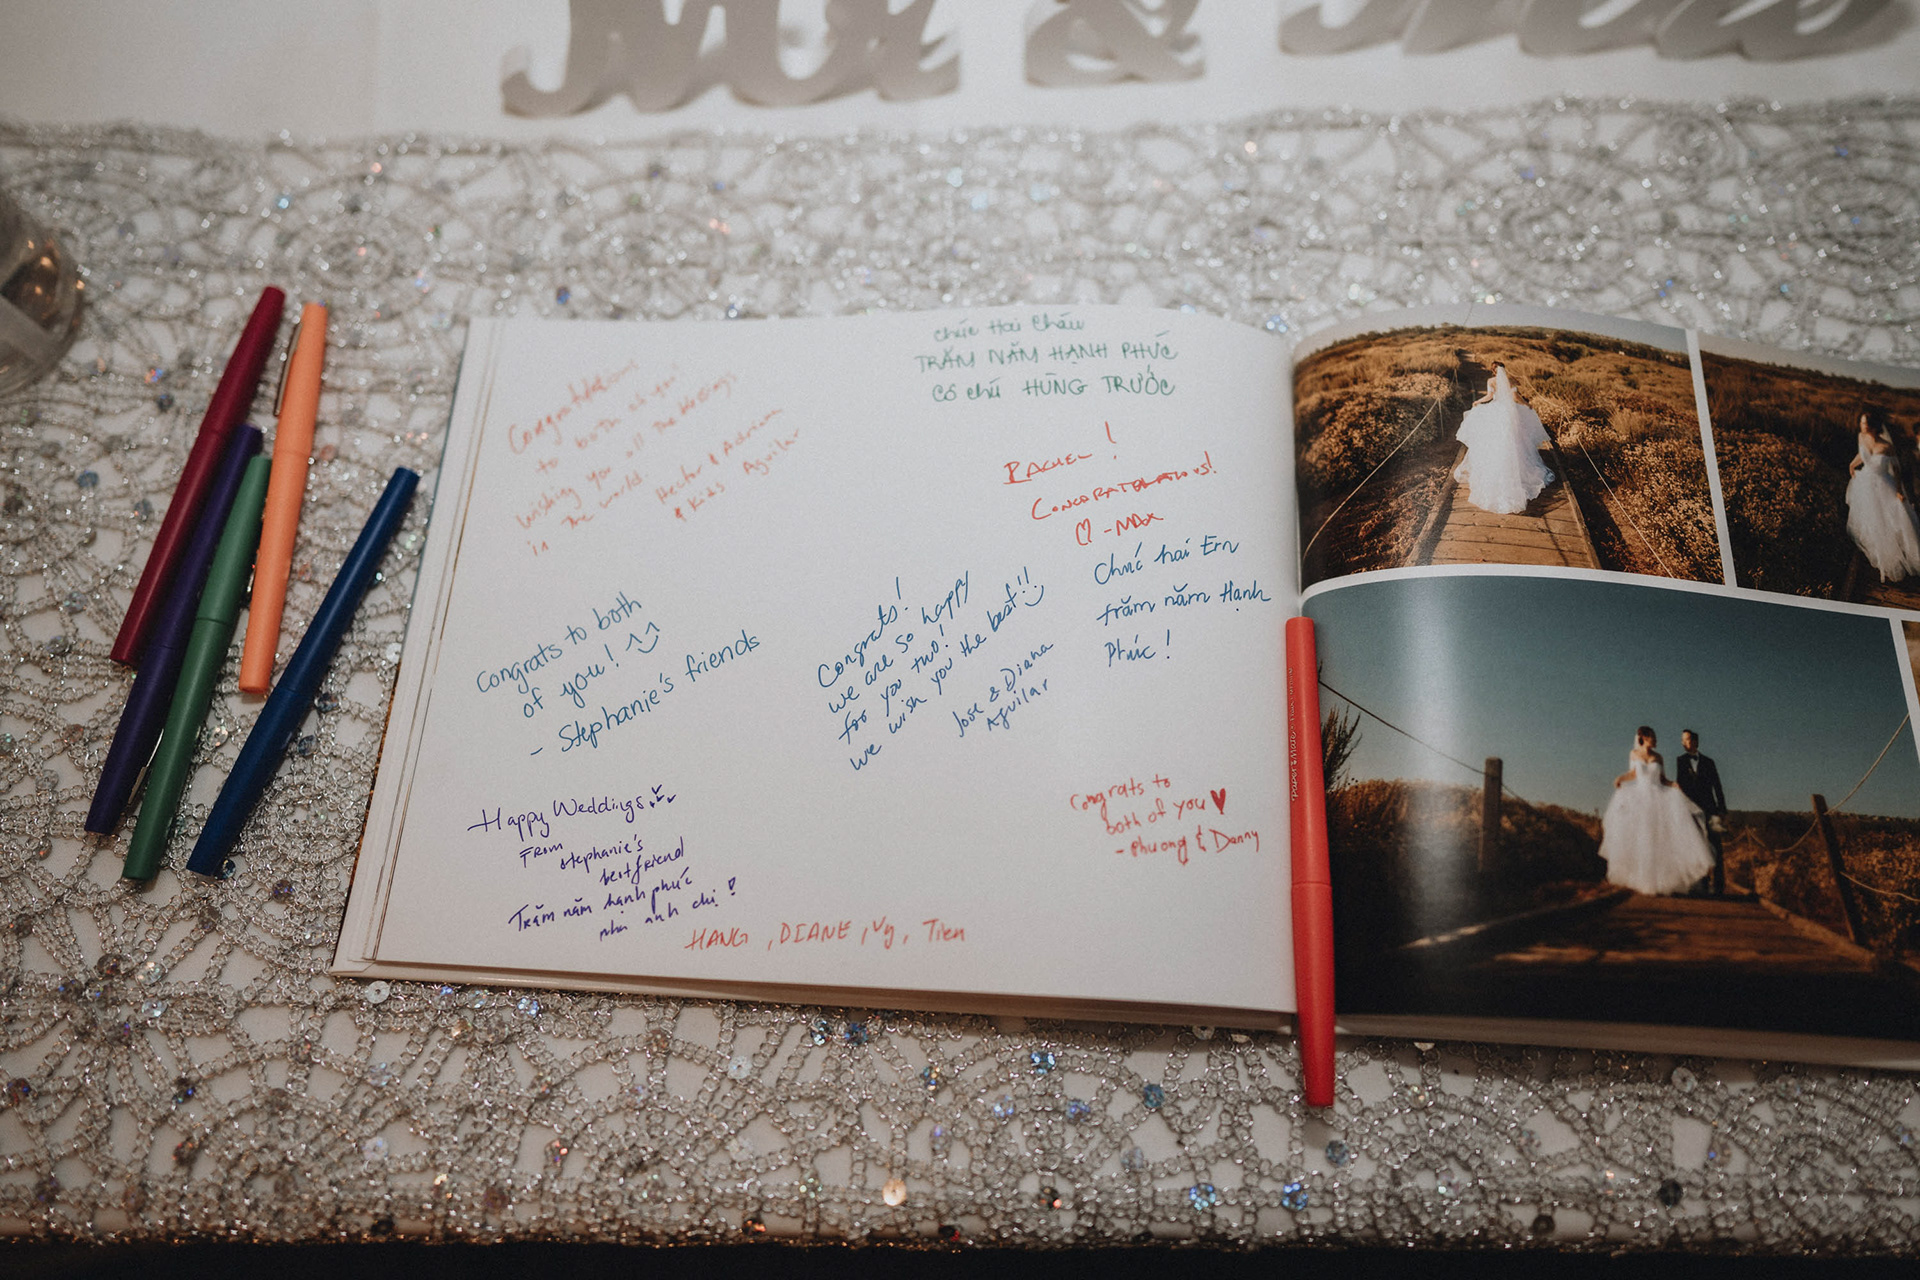 Mr & Mrs
chúc Hai Cháu
TRĂM NĂM HẠNH PHÚC
CÔ chú HÙNG TRƯỚC
Congratulations
to both of you!
Wishing you all the blessings
in the world.
Hector & Adrian
& Kids Aguilar
RACHEL!
CONGRATULATIONS!
-MAX
Chúc hai Em
trăm năm Hạnh
Phúc!
Congrats to both
of you!
- Stephanie's friends
Congrats!
we are so happy
for you two!
we wish you the best!!
Jose & Diana
Aguilar
Happy Weddings
From
Stephanie's
bestfriend
Trăm năm hạnh phúc
nha anh chị!
Congrats to
both of you
- Phuong & Danny
HANG, DIANE, Vy, Tien
Paper Mate